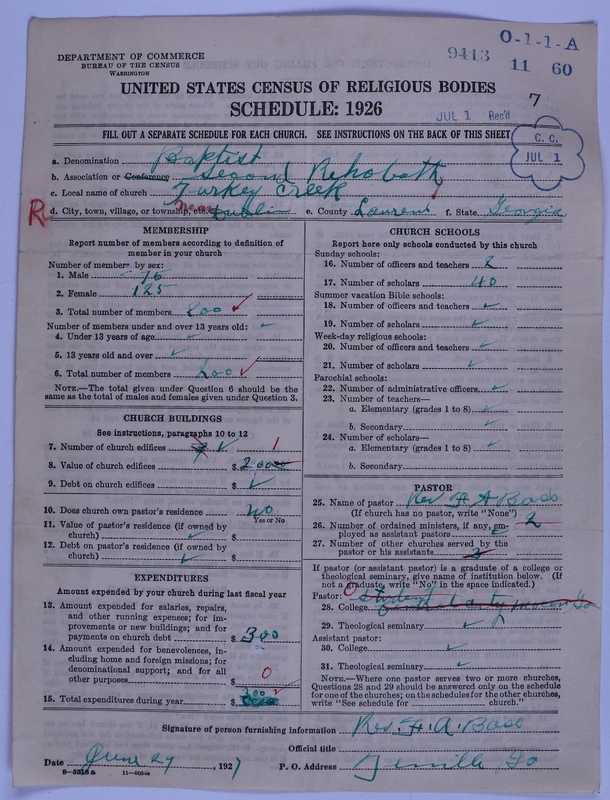 O-1-1-A
9413 11 60
DEPARTMENT OF COMMERCE
BUREAU OF THE CENSUS
WASHINGTON
UNITED STATES CENSUS OF RELIGIOUS BODIES
SCHEDULE: 1926
7
JUL 1 Rec'd
FILL OUT A SEPARATE SCHEDULE FOR EACH CHURCH. SEE INSTRUCTIONS ON THE BACK OF THIS SHEET
C. C.
JUL 1
a. Denomination Baptist
b. Association or Conference Second Rehobeth
c. Local name of church Turkey Creek
R d. City, town, village, or township, etc. near Dublin e. County Laurens f. State Georgia
MEMBERSHIP
Report number of members according to definition of
member in your church
Number of members by sex:
1. Male 75
2. Female 125
3. Total number of members 200 ✓
Number of members under and over 13 years old: ✓
4. Under 13 years of age ✓
5. 13 years old and over ✓
6. Total number of members 200 ✓
NOTE.—The total given under Question 6 should be the
same as the total of males and females given under Question 3.
CHURCH BUILDINGS
See instructions, paragraphs 10 to 12
7. Number of church edifices ✓ 1
8. Value of church edifices $ 2000
9. Debt on church edifices $ ✓
10. Does church own pastor's residence No
Yes or No
11. Value of pastor's residence (if owned by
church) ✓ $
12. Debt on pastor's residence (if owned by
church) ✓ $
EXPENDITURES
Amount expended by your church during last fiscal year
13. Amount expended for salaries, repairs,
and other running expenses; for im-
provements or new buildings; and for
payments on church debt $ 300
14. Amount expended for benevolences, in-
cluding home and foreign missions; for
denominational support; and for all
other purposes $ 0
15. Total expenditures during year $ 300 ✓
CHURCH SCHOOLS
Report here only schools conducted by this church
Sunday schools:
16. Number of officers and teachers 2
17. Number of scholars 40
Summer vacation Bible schools:
18. Number of officers and teachers ✓
19. Number of scholars ✓
Week-day religious schools:
20. Number of officers and teachers ✓
21. Number of scholars ✓
Parochial schools:
22. Number of administrative officers ✓
23. Number of teachers—
a. Elementary (grades 1 to 8) ✓
b. Secondary ✓
24. Number of scholars—
a. Elementary (grades 1 to 8) ✓
b. Secondary
PASTOR
25. Name of pastor Rev. H A Bass
(If church has no pastor, write "None")
26. Number of ordained ministers, if any, em-
ployed as assistant pastors 2
27. Number of other churches served by the
pastor or his assistants 2
If pastor (or assistant pastor) is a graduate of a college or
theological seminary, give name of institution below. (If
not a graduate, write "No" in the space indicated.)
Pastor: Student
28. College
29. Theological seminary ✓
Assistant pastor:
30. College ✓
31. Theological seminary ✓
NOTE.—Where one pastor serves two or more churches,
Questions 28 and 29 should be answered only on the schedule
for one of the churches; on the schedules for the other churches,
write "See schedule for church."
Signature of person furnishing information Rev. H. A. Bass
Official title
Date June 27, 1927 P. O. Address Tennille, Ga
8—5518 a 11—9051a